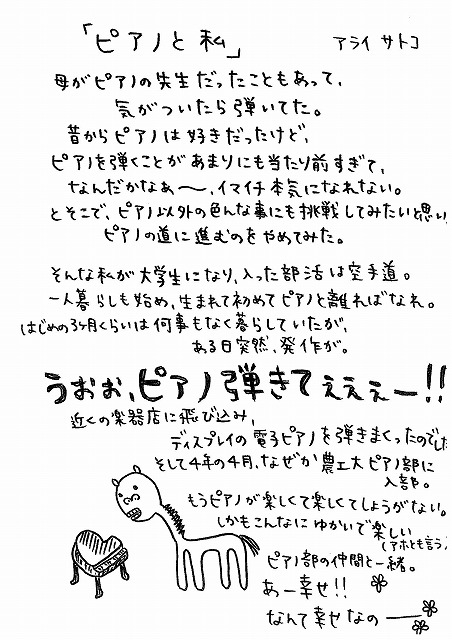 「ピアノと私」 アライ サトコ
母がピアノの先生だったこともあって、
気がついたら弾いてた。
昔からピアノは好きだったけど、
ピアノを弾くことがあまりにも当たり前すぎて、
なんだかなぁ〜、イマイチ本気になれない。
とそこで、ピアノ以外の色んな事にも挑戦してみたいと思い
ピアノの道に進むのをやめてみた。
そんな私が大学生になり、入った部活は空手道。
一人暮らしも始め、生まれて初めてピアノと離ればなれ。
はじめの3ヶ月くらいは何事もなく暮らしていたが、
ある日突然、発作が。
うおぉ、ピアノ弾きてぇぇぇー!!
近くの楽器店に飛び込み、
ディスプレイの電子ピアノを弾きまくったのでした
そして4年の4月、なぜか農工大ピアノ部に
入部。
もうピアノが楽しくて楽しくてしょうがない。
しかもこんなにゆかいで楽しい
(アホとも言う)
ピアノ部の仲間と一緒。
あー幸せ!!
なんて幸せなのー